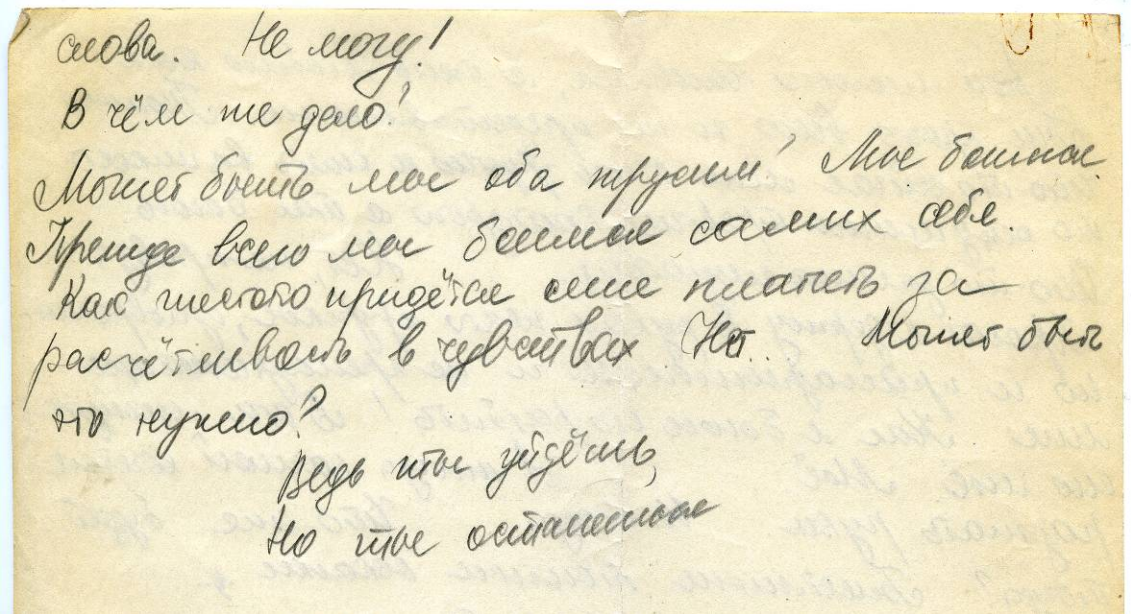 слова. Не могу!
В чём же дело?
Может быть мы оба трусим? Мы боимся.
Прежде всего мы боимся самих себя.
Как часто придётся мне платить за
расчётливость в чувствах Но.. Может быть
это нужно?
Ведь ты уйдёшь,
Но ты останешься